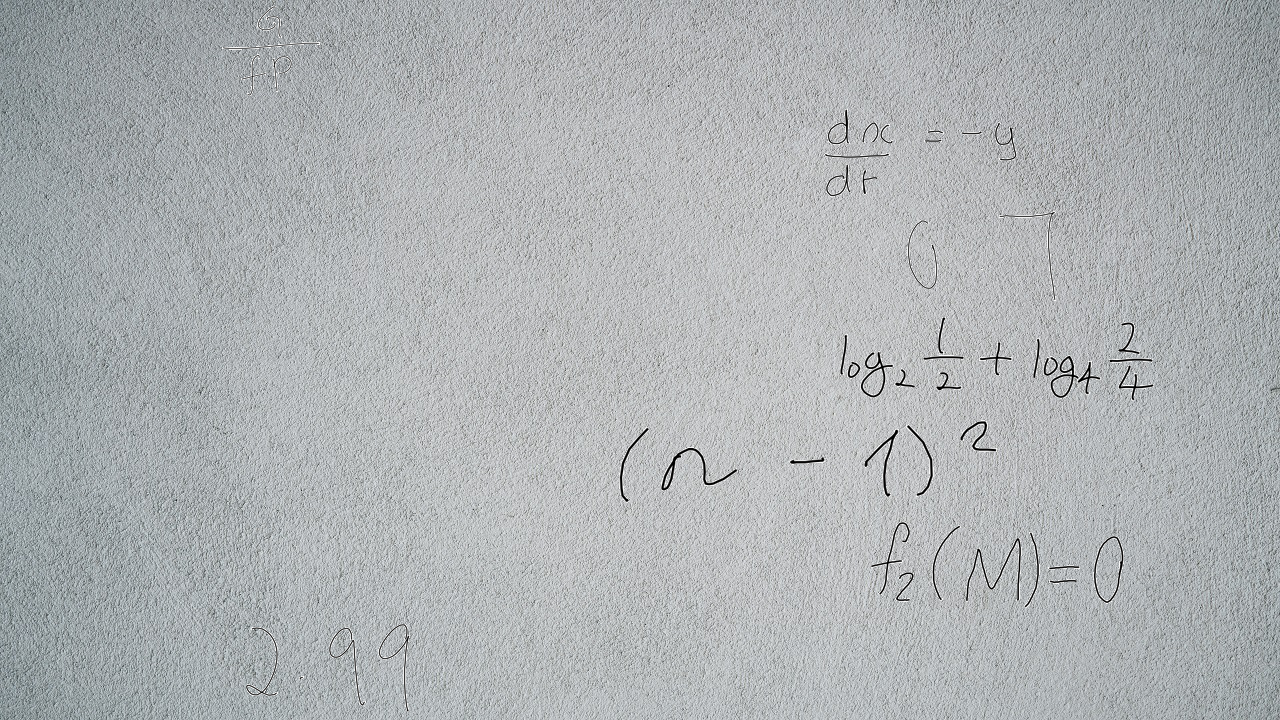 \frac{6}{f.p}
\frac{dx}{dt} = -y
0.7
\log_2 \frac{1}{2} + \log_4 \frac{2}{4}
(n - 1)^2
f_2(M) = 0
2.99